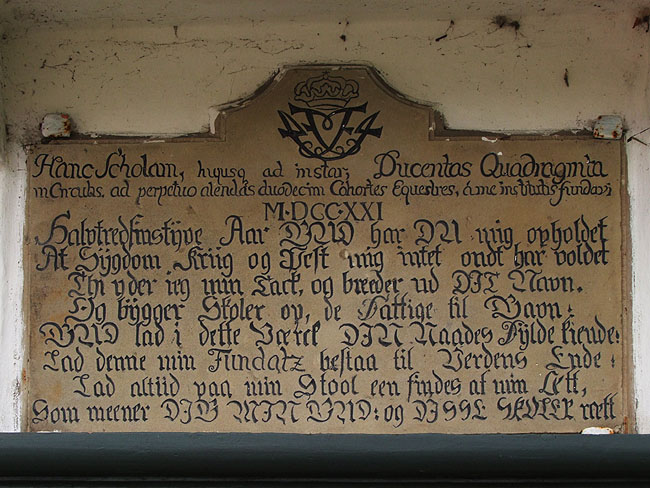 Hanc Scholam, hujusq ad instar, Ducentas Quadraginta
in Circulis. ad perpetuo alendas duodecim Cohortes Equestres, a me institutis fundavi
M·DCC·XXI
Halvtredsinstyve Aar GUD har DU mig opholdet
At Sygdom Kriig og Pest mig intet ondt har voldet
Thi yder jeg min Tack, og breeder ud DIT Navn.
Og bygger Skoler op, de Fattige til Gavn:
GUD lad i dette Værck DIN Naades Fylde kiende:
Lad denne min Fundatz bestaa til Verdens Ende·
Lad altiid paa min Stool een findes af min Ætt,
Som meener DIG MIN GUD: og DISSE SKOLER rætt